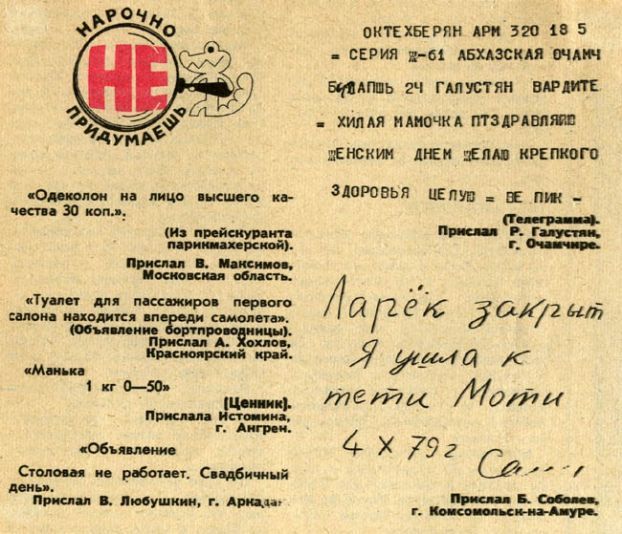 НАРОЧНО
НЕ
ПРИДУМАЕШЬ
«Одеколон на лицо высшего ка-
чества 30 коп.».
(Из прейскуранта
парикмахерской).
Прислал В. Максимов,
Московская область.
«Туалет для пассажиров первого
салона находится впереди самолета».
(Объявление бортпроводницы).
Прислал А. Хохлов,
Красноярский край.
«Манька
1 кг 0—50»
(Ценник).
Прислала Истомина,
г. Ангрен.
«Объявление
Столовая не работает. Свадбичный
день».
Прислал В. Любушкин, г.
ОКТЕХБЕРЯН АРМ 320 18 5
= СЕРИЯ Ж-61 АБХАЗСКАЯ ОЧАМЧ
2Ч ГАЛУСТЯН ВАРДИТЕ
= ХИЛАЯ МАМОЧКА ПТЗДРАВЛЯЮ
ЖЕНСКИМ ДНЕМ ЖЕЛАЮ КРЕПКОГО
ЗДОРОВЬЯ ЦЕЛУЮ = ВЕ ПИК -
(Телеграмма).
Прислал Р. Галустян,
г. Очамчире.
Ларёк закрыт
Я ушла к
тети Моти
4 X 79г
Прислал Б. Соболев,
г. Комсомольск-на-Амуре.